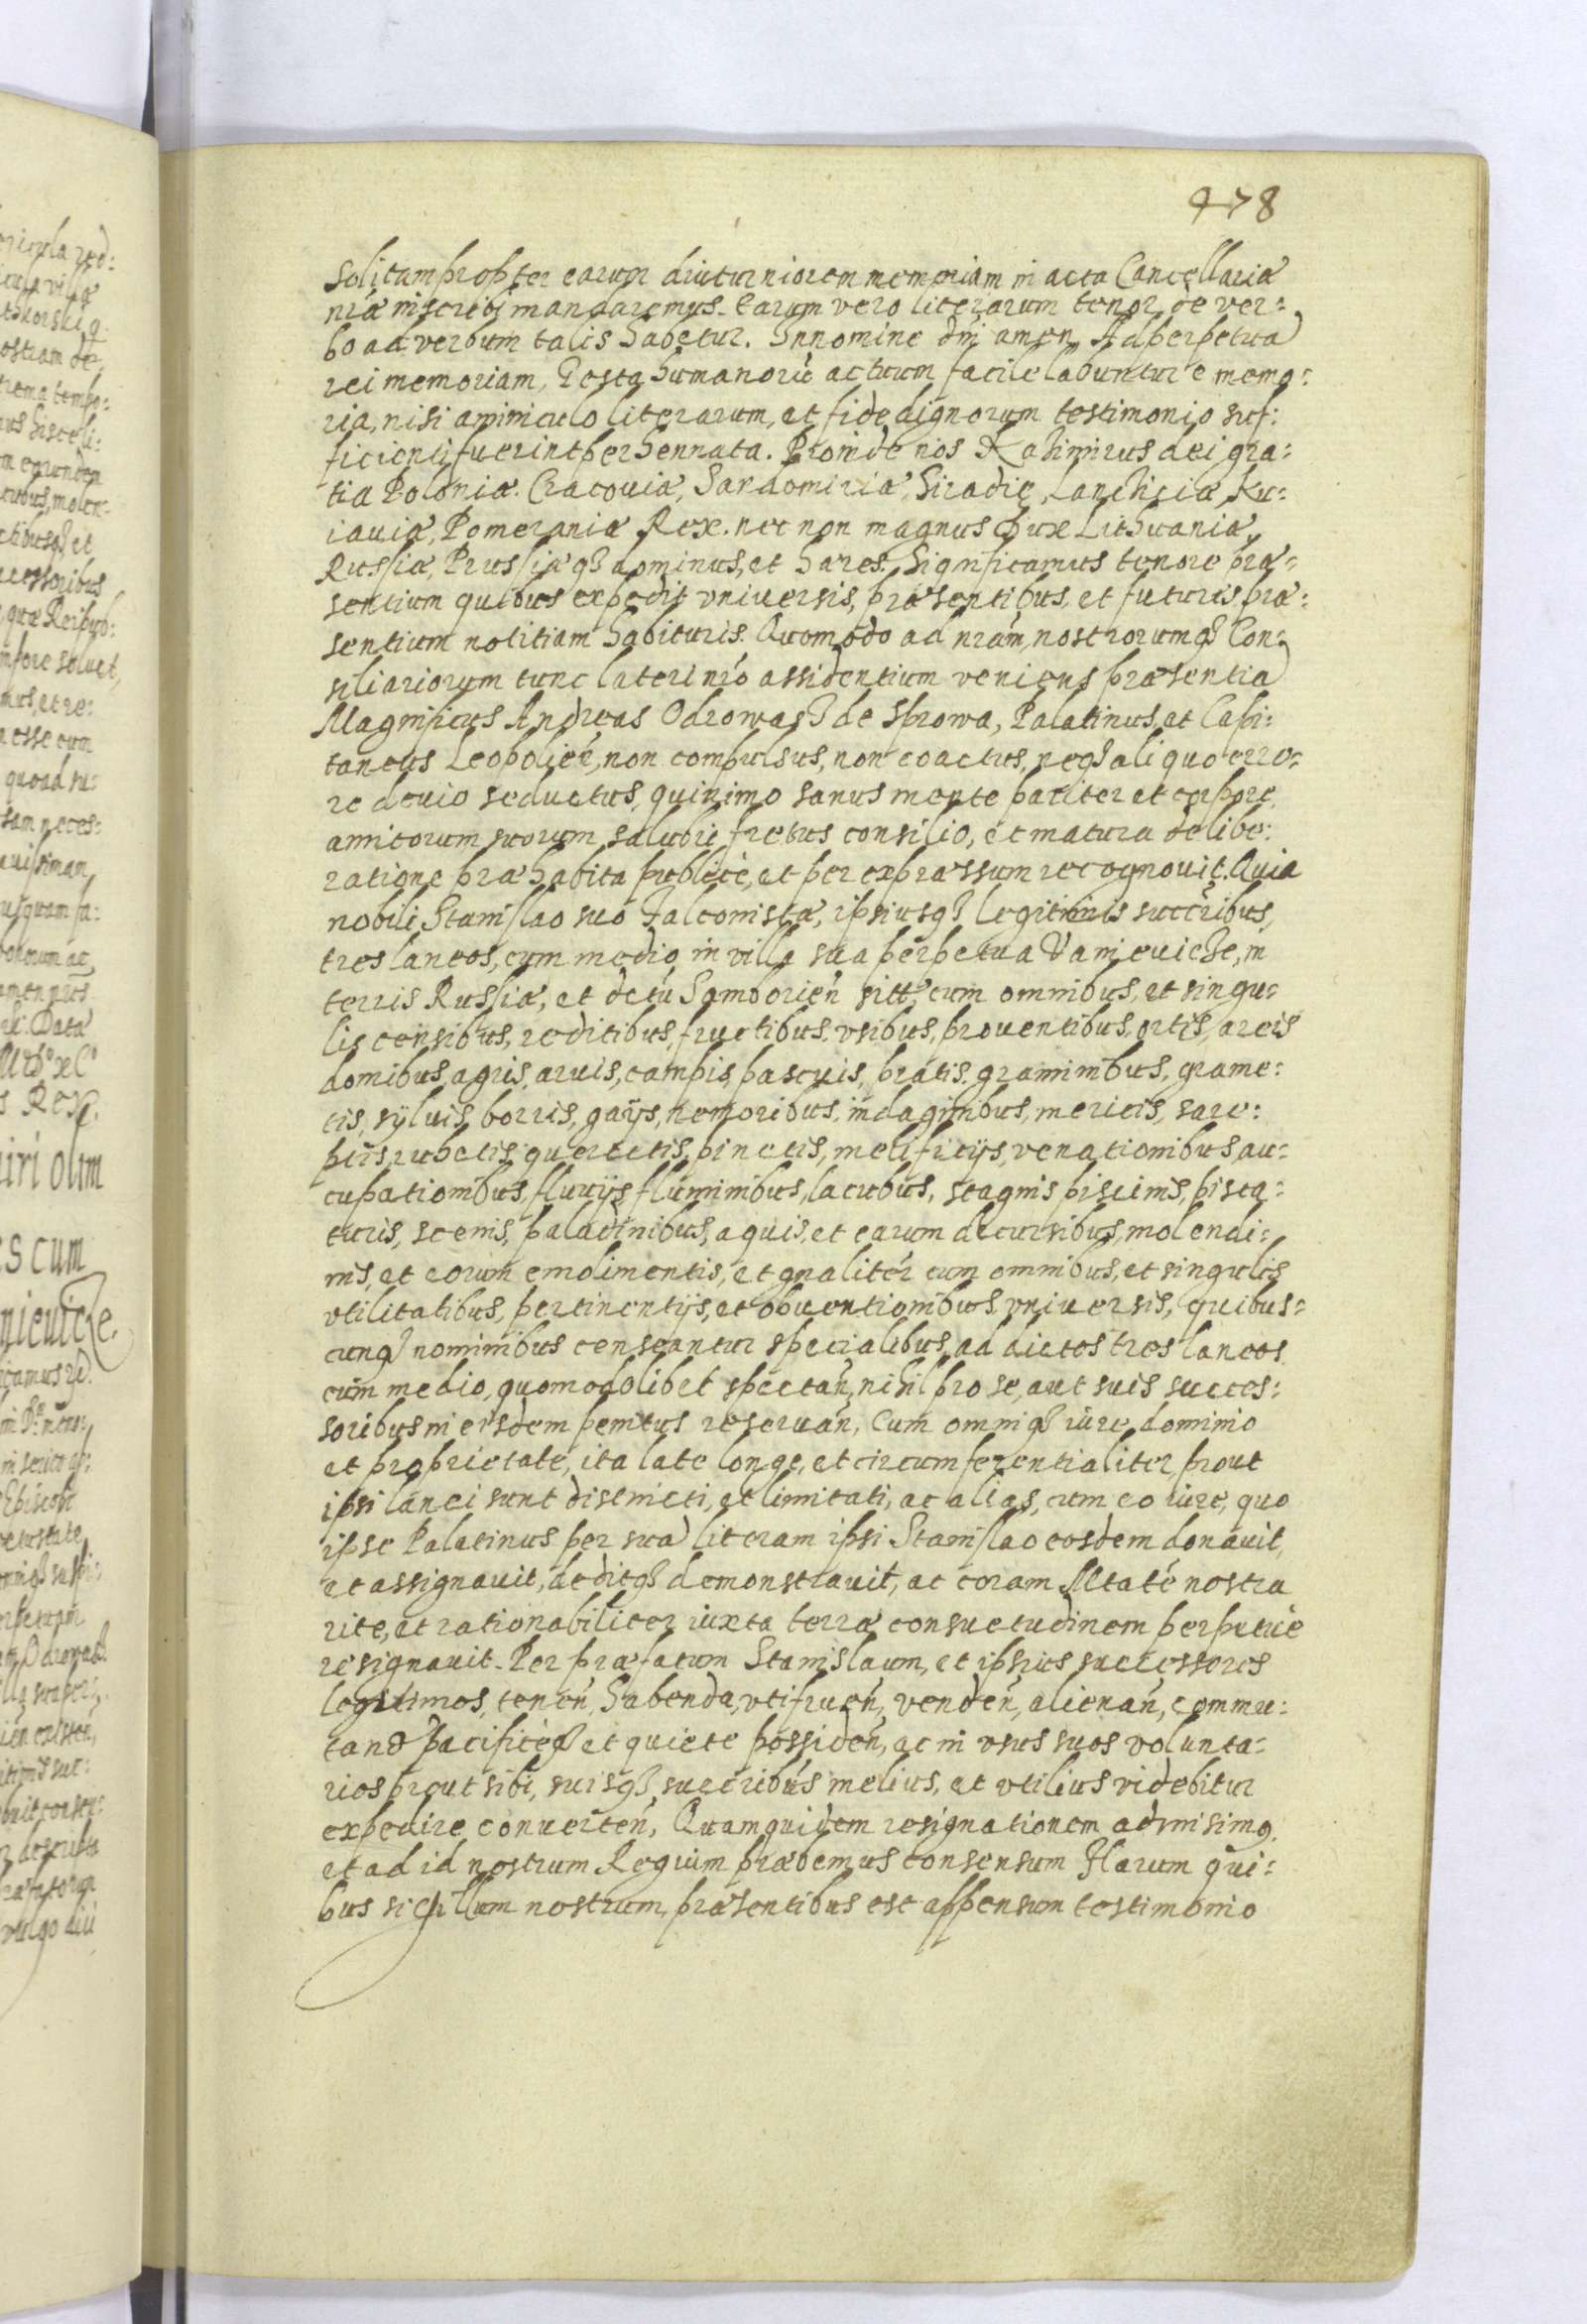 478
solitam propter earum diuturniorem memoriam in acta Cancellariæ
nræ inscribi mandaremus. Earum vero literarum tenor de ver:
bo ad verbum talis habetur. In nomine dni amen. Ad perpetua
rei memoriam, Gesta humanorũ actuum facile labuntur e memo:
ria, nisi aminiculo literarum, et fide dignorum testimonio suf:
ficienti fuerint perhennata. Proinde nos Kasimirus dei gra:
tia Poloniæ. Cracouiæ, Sandomiriæ, Siradię, Lanchiciæ, Ku:
iauiæ, Pomeraniæ Rex. nec non magnus Dux Lithuaniæ,
Russiæ, Prussiæq3 dominus, et hæres. Significamus tenore præ:
sentium quibus expedit vniuersis, præsentibus, et futuris, præ:
sentium notitiam habituris. Quomodo ad nram, nostrorumq3 Con:
siliariorum tunc lateri nro assidentium veniens præsentia
Magnificus Andreas Odrowasz de Sprowa, Palatinus, et Capi:
taneus Leopolien, non compulsus, non coactus, neq3 aliquo erro:
re deuio seductus, quinimo sanus mente pariter et corpore,
amicorum suorum salubri fretus consilio, et matura delibe:
ratione præhabita publicè, et per expræssum recognouit. Quia
nobili Stanislao suo Falconistæ, ipsiusq3 legitimis succribus,
tres laneos, cum medio, in villa sua perpetua Vanieuicze, in
terris Russiæ, et dctu Samborien sitt, cum omnibus, et singu:
lis censibus, reditibus, fructibus, vsibus, prouentibus, ortis, areis
domibus, agris, aruis, campis, pascuis, pratis, graminibus, grame:
tis, syluis, borris, gaijs, nemoribus, indaginibus, mericis, saru:
petis, rubetis, quercetis, pinetis, melificijs, venationibus, au:
cupationibus, fluuijs, fluminibus, lacubus, stagnis, piscinis, pisca:
turis, scenis, paladinibus, aquis, et earum decursibus, molendi:
nis, et eorum emolimentis, et gnaliter cum omnibus, et singulis
vtilitatibus, pertinentijs, et obuentionibus vniuersis, quibus:
cunq3 nominibus censeantur specialibus, ad dictos tres laneos
cum medio, quomodolibet spectan, nihil pro se, aut suis succes:
soribus in eisdem penitus reseruan, Cum omniq3 iure, dominio
et proprietate, ita late longe, et circumferentialiter, prout
ipsi lanei sunt distincti, et limitati, ac alias, cum eo iure, quo
ipse Palatinus per sua literam ipsi Stanislao eosdem donauit,
et assignauit, deditq3 demonstrauit, ac coram Mtate nostra
rite, et rationabiliter iuxta terræ consuetudinem perpetuè
resignauit. Per præfatum Stanislaum, et ipsius successores
legitimos, tenen, habenda, vtifruen, venden, alienan, commu:
tand pacificèq3 et quiete possiden, ac in vsus suos volunta:
rios prout sibi, suisq3 succribus melius, et vtilius videbitur
expedire conuerten, Quamquidem resignationem admisimq
et ad id nostrum Regium præbemus consensum Harum qui:
bus sigillum nostrum præsentibus est appensum testimonio